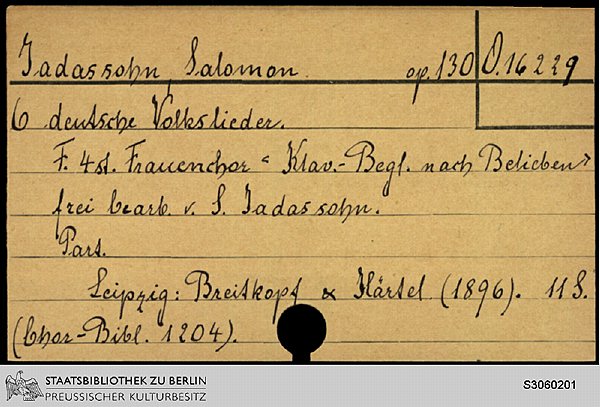 Jadassohn, Salomon. op. 130 O. 16229
6 deutsche Volkslieder.
F. 4st. Frauenchor < Klav.-Begl. nach Belieben>
frei bearb. v. S. Jadassohn.
Part.
Leipzig: Breitkopf & Härtel (1896). 11 S.
(Chor-Bibl. 1204).
STAATSBIBLIOTHEK ZU BERLIN
PREUSSISCHER KULTURBESITZ
S3060201